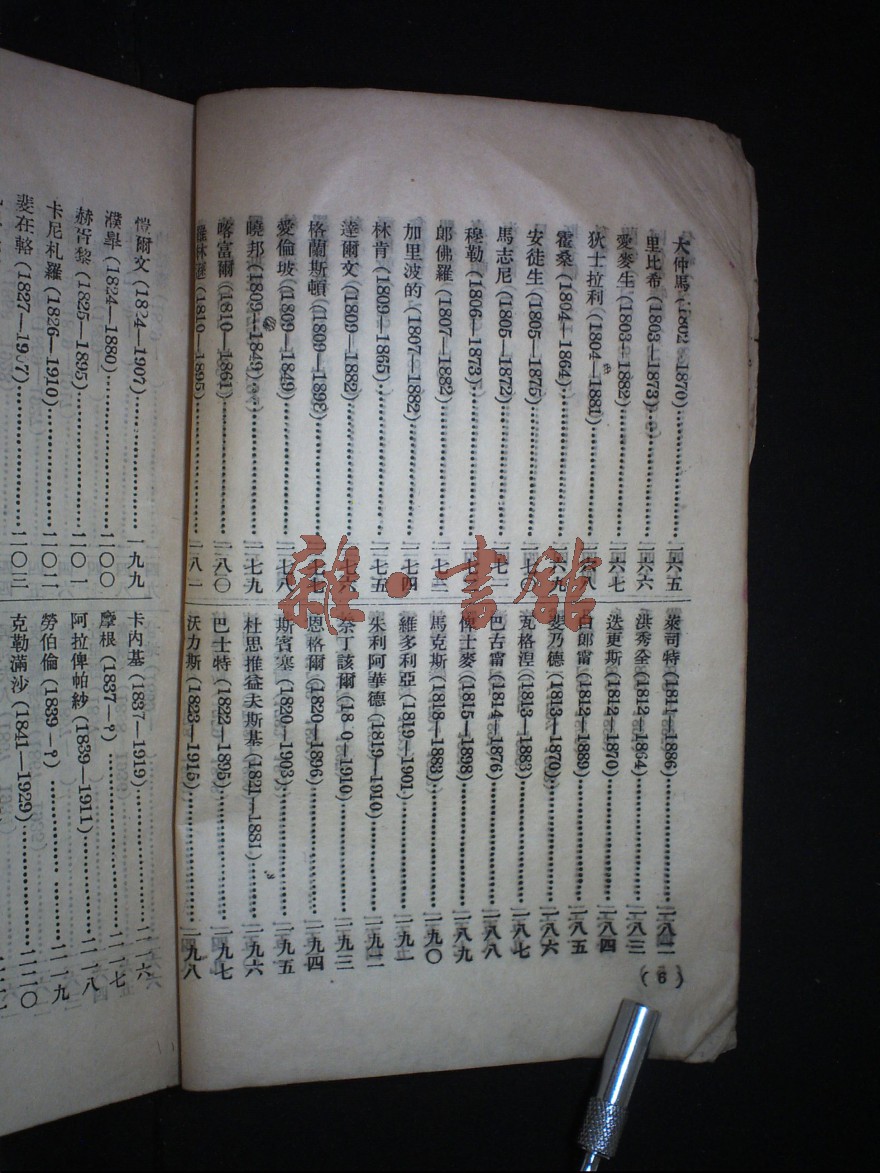 大仲馬(1802—1870)……一六五
里比希(1803—1873)……一六六
愛麥生(1803—1882)……一六七
狄士拉利(1804—1881)……一六八
霍桑(1804—1864)……一六九
安徒生(1805—1875)……一七〇
馬志尼(1805—1872)……一七一
穆勒(1806—1873)……一七二
郎佛羅(1807—1882)……一七三
加里波的(1807—1882)……一七四
林肯(1809—1865)……一七五
達爾文(1809—1882)……一七六
格蘭斯頓(1809—1898)……一七七
愛倫坡(1809—1849)……一七八
曉邦(1809—1849)……一七九
喀富爾(1810—1861)……一八〇
(1810—1895)……一八一
萊司特(1811—1886)……一八二
洪秀全(1812—1864)……一八三
迭更斯(1812—1870)……一八四
白郎甯(1812—1889)……一八五
斐乃德(1813—1870)……一八六
瓦格涅(1813—1883)……一八七
巴古甯(1814—1876)……一八八
俾士麥(1815—1898)……一八九
馬克斯(1818—1883)……一九〇
維多利亞(1819—1901)……一九一
朱利阿華德(1819—1910)……一九二
奈丁該爾(18 0—1910)……一九三
恩格爾(1820—1896)……一九四
斯賓塞(1820—1903)……一九五
杜思推益夫斯基(1821—1881)……一九六
巴士特(1822—1895)……一九七
沃力斯(1823—1915)……一九八
(6)
愷爾文(1824—1907)……一九九
濮舉(1824—1880)……二〇〇
赫胥黎(1825—1895)……二〇一
卡尼札羅(1826—1910)……二〇二
斐在輅(1827—1907)……二〇三
卡內基(1837—1919)……二一六
摩根(1837—?)……二一七
阿拉俾帕紗(1839—1911)……二一八
勞伯倫(1839—?)……二一九
克勒滿沙(1841—1929)……二二〇
雜·書館